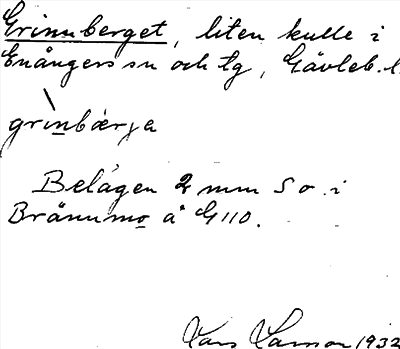 Grinnberget, liten kulle i
Enångers sn och tg, Gävleb. l.
grinbærja
Belägen 2 mm So. i
Brännmo å G110.
Lars Larson 1932